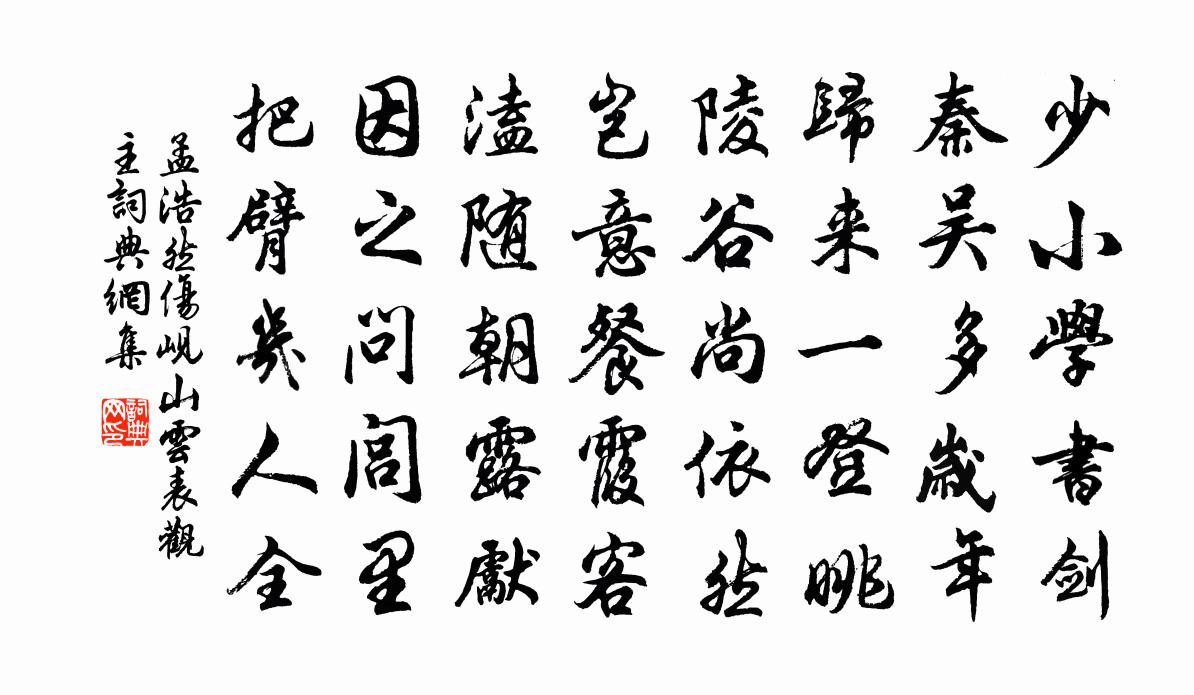 少小學書劍
秦吴多歲年
歸来一登眺
陵谷尚依然
豈意餐霞客
溘随朝露獻
因之問閭里
把臂幾人全
孟浩然傷峴山雲表觀
主詞典網集
詞典
网印